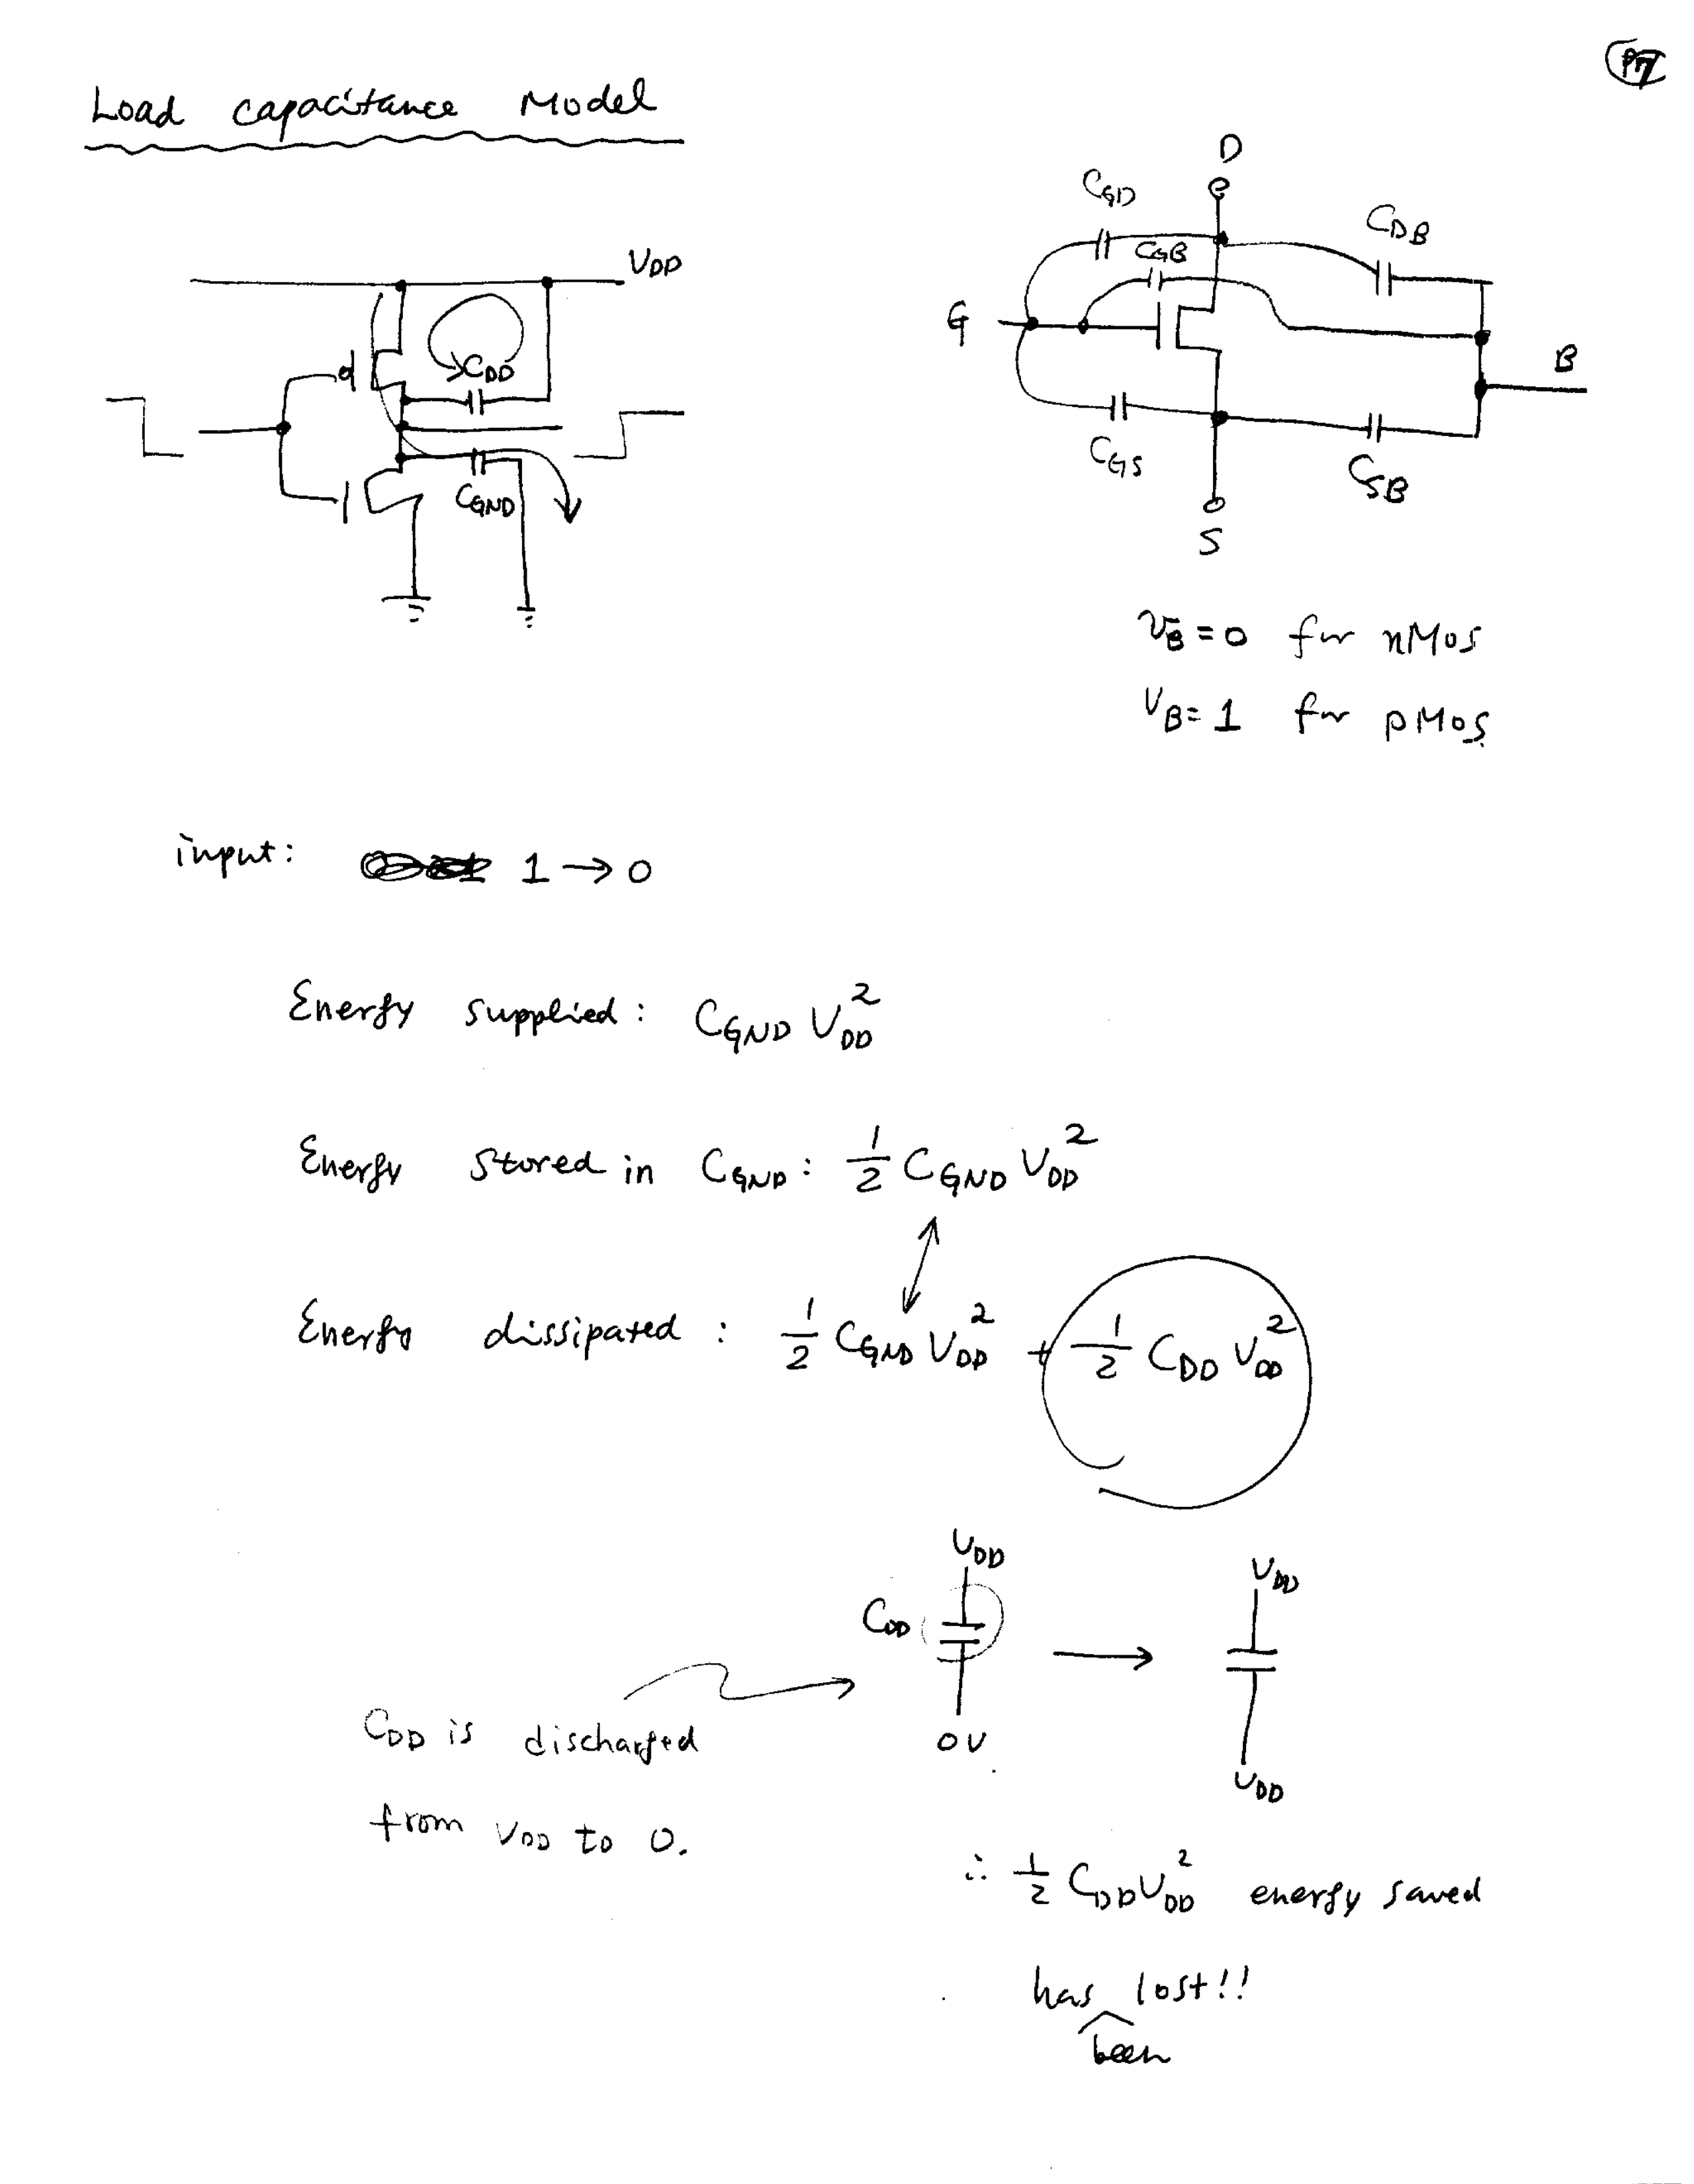 P7
Load capacitance Model
VDD
CDD
CGND
D
CGD
CGB
CDB
G
B
CGS
CSB
S
VB = 0 for nMos
VB = 1 for pMos
input: 1 → 0
Energy supplied : CGND VDD²
Energy stored in CGND : 1/2 CGND VDD²
Energy dissipated : 1/2 CGND VDD² + 1/2 CDD VDD²
VDD
VDD
CDD
0V
VDD
CDD is discharged
from VDD to 0.
∴ 1/2 CDD VDD² energy saved
has been lost!!